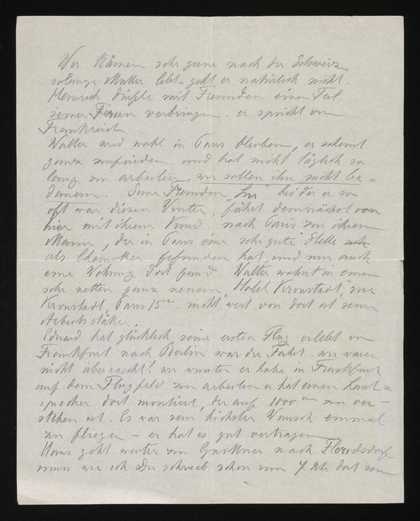 Wir kämen sehr gerne nach der Schweiz
solange Mutter lebt geht es natürlich nicht.
Heinrich dürfte mit Freunden einen Teil
seiner Ferien verbringen. er spricht von
Frankreich
Walter wird wohl in Paris bleiben, er scheint
ganz zufrieden und hat nicht täglich so
lang zu arbeiten, wir sollen ihn nicht be-
dauern. Seine Freundin bei der er so
oft war diesen Winter, fährt demnächst von
hier mit ihrem Kind nach Paris zu ihrem
Manne, der in Paris eine sehr gute Stelle
als Chemiker gefunden hat und nun auch
eine Wohnung dort fand. Walter wohnt in einem
sehr netten ganz neuen Hotel Kronstadt, rue
Kronstadt, Paris 15 nicht weit von dort ist seine
Arbeitsstätte.
Eduard hat glücklich seine ersten Flug erlebt von
Frankfurt nach Berlin war die Fahrt wir waren
nicht überrascht! wir wussten er habe in Frankfurt
auf dem Flugfeld zu arbeiten er hat einen Laut
sprecher dort montiert, der auf 1000 m zu ver-
stehen ist. Es war sein höchster Wunsch einmal
zu fliegen – er hat es gut vertragen
Hans geht weiter von Gärtner nach Floridsdorf
wie ich Dir schrieb schon um 7 Uhr dort sein